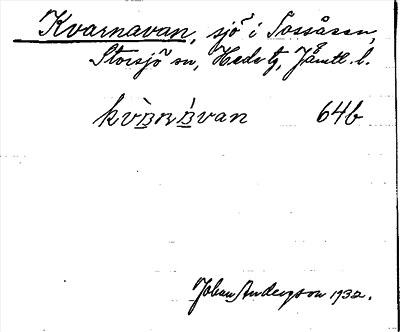 Kvarnavan, sjö i Tossåsen,
Storsjö sn, Hede tg, Jämtl. l.
kvʙ̀nʙ́van 64b
Johan Anderson 1932.